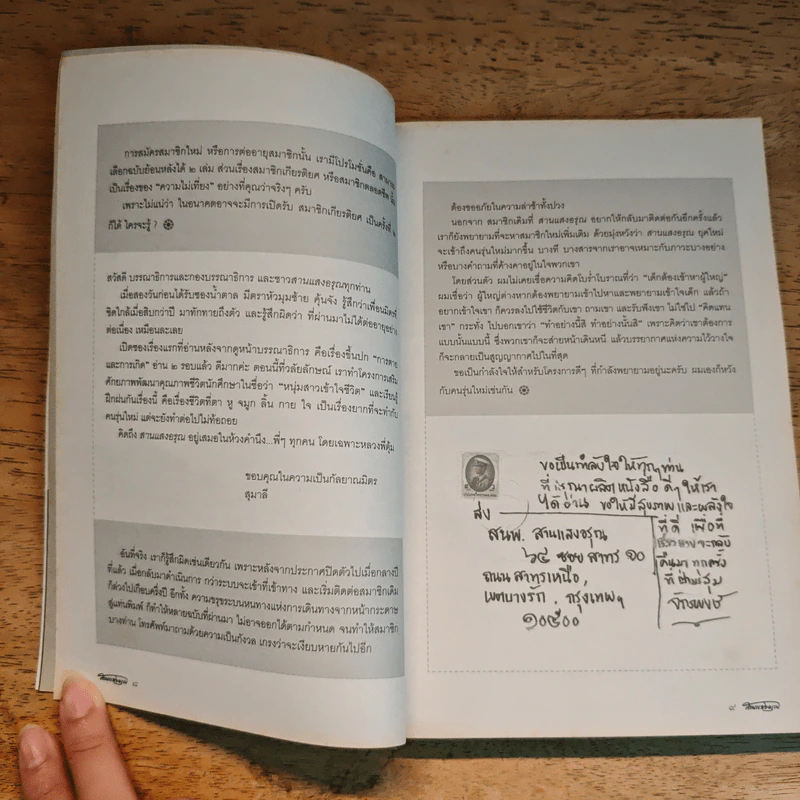 การสมัครสมาชิกใหม่ หรือการต่ออายุสมาชิกนั้น เรามีโปรโมชั่นคือ
เลือกฉบับย้อนหลังได้ ๒ เล่ม ส่วนเรื่องสมาชิกเกียรติยศ หรือสมาชิกตลอดชีพ
เป็นเรื่องของ “ความไม่เที่ยง” อย่างที่คุณว่าจริงๆ ครับ
เพราะไม่แน่ว่า ในอนาคตอาจจะมีการเปิดรับ สมาชิกเกียรติยศ เป็นครั้งที่ ๒
ก็ได้ ใครจะรู้ ?
สวัสดี บรรณาธิการและกองบรรณาธิการ และชาวสานแสงอรุณทุกท่าน
เมื่อสองวันก่อนได้รับซองน้ำตาล มีตราหัวมุมซ้าย คุ้นจัง รู้สึกว่าเพื่อนมิตรที่
ชิดใกล้เมื่อสิบกว่าปี มาทักทายถึงตัว และรู้สึกผิดว่า ที่ผ่านมาไม่ได้ต่ออายุอย่าง
ต่อเนื่อง เหมือนละเลย
เปิดซองเรื่องแรกที่อ่านหลังจากดูหน้าบรรณาธิการ คือเรื่องขึ้นปก “การตาย
และการเกิด” อ่าน ๒ รอบแล้ว ดีมากค่ะ ตอนนี้ที่วลัยลักษณ์ เราทำโครงการเสริม
ศักยภาพพัฒนาคุณภาพชีวิตนักศึกษาในชื่อว่า “หนุ่มสาวเข้าใจชีวิต” และเรียนรู้
ฝึกฝนกันเรื่องนี้ คือเรื่องชีวิตที่ตา หู จมูก ลิ้น กาย ใจ เป็นเรื่องยากที่จะทำกับ
คนรุ่นใหม่ แต่จะยังทำต่อไปไม่ท้อถอย
คิดถึง สานแสงอรุณ อยู่เสมอในห้วงคำนึง...พี่ๆ ทุกคน โดยเฉพาะหลวงพี่ตุ้ม
ขอบคุณในความเป็นกัลยาณมิตร
สุมาลี
อันที่จริง เราก็รู้สึกผิดเช่นเดียวกัน เพราะหลังจากประกาศปิดตัวไปเมื่อกลางปี
ที่แล้ว เมื่อกลับมาดำเนินการ กว่าระบบจะเข้าที่เข้าทาง และเริ่มติดต่อสมาชิกเดิม
ก็ล่วงไปเกือบครึ่งปี อีกทั้ง ความขรุขระบนหนทางแห่งการเดินทางจากหน้ากระดาษ
สู่แท่นพิมพ์ ก็ทำให้หลายฉบับที่ผ่านมา ไม่อาจออกได้ตามกำหนด จนทำให้สมาชิก
บางท่าน โทรศัพท์มาถามด้วยความเป็นกังวล เกรงว่าจะเงียบหายกันไปอีก
สานแสงอรุณ ๘
ต้องขออภัยในความล่าช้าทั้งปวง
นอกจาก สมาชิกเดิมที่ สานแสงอรุณ อยากให้กลับมาติดต่อกันอีกครั้งแล้ว
เราก็ยังพยายามที่จะหาสมาชิกใหม่เพิ่มเติม ด้วยมุ่งหวังว่า สานแสงอรุณ ยุคใหม่
จะเข้าถึงคนรุ่นใหม่มากขึ้น บางที บางสารจากเราอาจเหมาะกับภาวะบางอย่าง
หรือบางคำถามที่ค้างคาอยู่ในใจพวกเขา
โดยส่วนตัว ผมไม่เคยเชื่อความคิดโบร่ำโบราณที่ว่า “เด็กต้องเข้าหาผู้ใหญ่”
ผมเชื่อว่า ผู้ใหญ่ต่างหากต้องพยายามเข้าไปหาและพยายามเข้าใจเด็ก แล้วถ้า
อยากเข้าใจเขา ก็ควรลงไปใช้ชีวิตกับเขา ถามเขา และรับฟังเขา ไม่ใช่ไป “คิดแทน
เขา” กระทั่ง ไปบอกเขาว่า “ทำอย่างนี้สิ ทำอย่างนั้นสิ” เพราะคิดว่าเขาต้องการ
แบบนั้นแบบนี้ ซึ่งพวกเขาก็จะส่ายหน้าเดินหนี แล้วบรรยากาศแห่งความไว้วางใจ
ก็จะกลายเป็นสูญญากาศไปในที่สุด
ขอเป็นกำลังใจให้สำหรับโครงการดีๆ ที่กำลังพยายามอยู่นะครับ ผมเองก็หวัง
กับคนรุ่นใหม่เช่นกัน
ขอเป็นกำลังใจให้ทุกๆ ท่าน
ที่กรุณาผลิตหนังสือดีๆ ให้เรา
ได้อ่าน ขอให้มีสุขภาพและพลังใจ
ที่ดี เพื่อที่
คืนมา ทุกครั้ง
ที่
ส่ง
สนพ. สานแสงอรุณ
๖๕ ซอย สาทร ๑๐
ถนน สาทรเหนือ,
เขตบางรัก, กรุงเทพฯ
๑๐๕๐๐
๙ สานแสงอรุณ